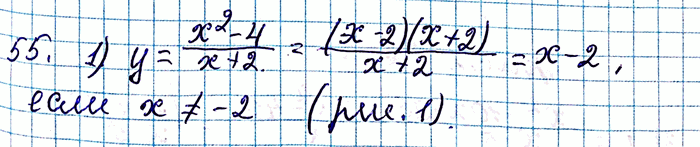 55. 1) y = \frac{x^2-4}{x+2} = \frac{(x-2)(x+2)}{x+2} = x-2,
если x ≠ -2 (рис. 1).